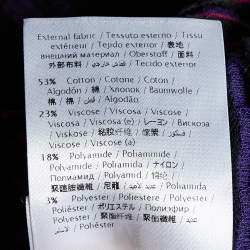 External fabric / Tessuto esterno / Tissu
extérieur / Tejido exterior / 表地 /
внешний материал / Oberstoff / 面料 /
外部布料 / قماش خارجي / Tecido exterior
53% Cotton / Cotone / Coton /
Algodón / 綿 / Хлопок / Baumwolle /
棉 / 棉 / قطن / Algodão
23% Viscose / Viscosa / Viscose /
Viscosa / Viscosa (e) / レーヨン / Вискоза
/ Viskose / 粘胶纤维 / / فيسكوز /
Viscose / Viscose (a)
18% Polyamide / Poliammide /
Polyamide / Poliamida / ナイロン /
Полиамид / Polyamid / 锦纶 /
聚醯胺纖維 / 尼龍 / / Poliamida
3% Polyester / Poliestere / Polyester /
Poliéster / ポリエステル / Полиэфир /
Polyester / 聚酯纤维 / 聚酯纖維 /
Poliéster